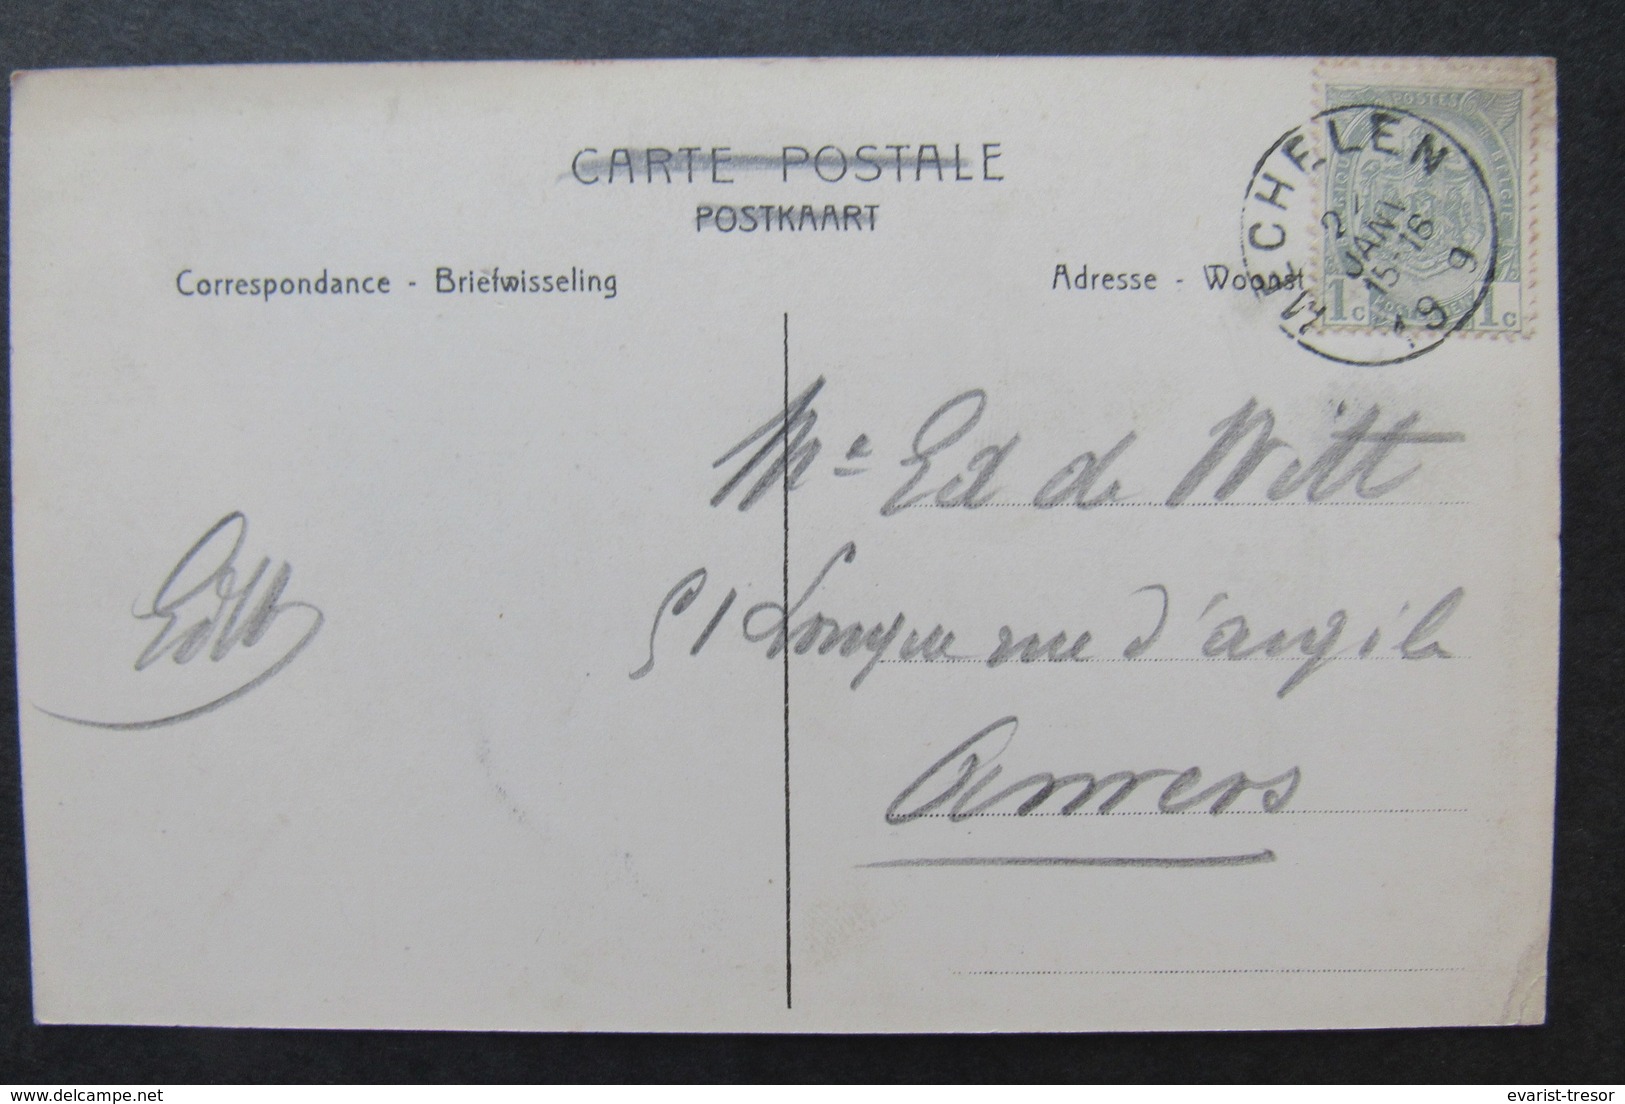 CARTE POSTALE
POSTKAART
Correspondance - Briefwisseling
Adresse - Woonst
POSTES
BELGIQUE BELGIE
1c 1c
MECHELEN
2-
JANV
15-16
19 9
Me Ed de Witt
51 Longue rue d'argile
Anvers
EdW
delcampe.net
evarist-tresor